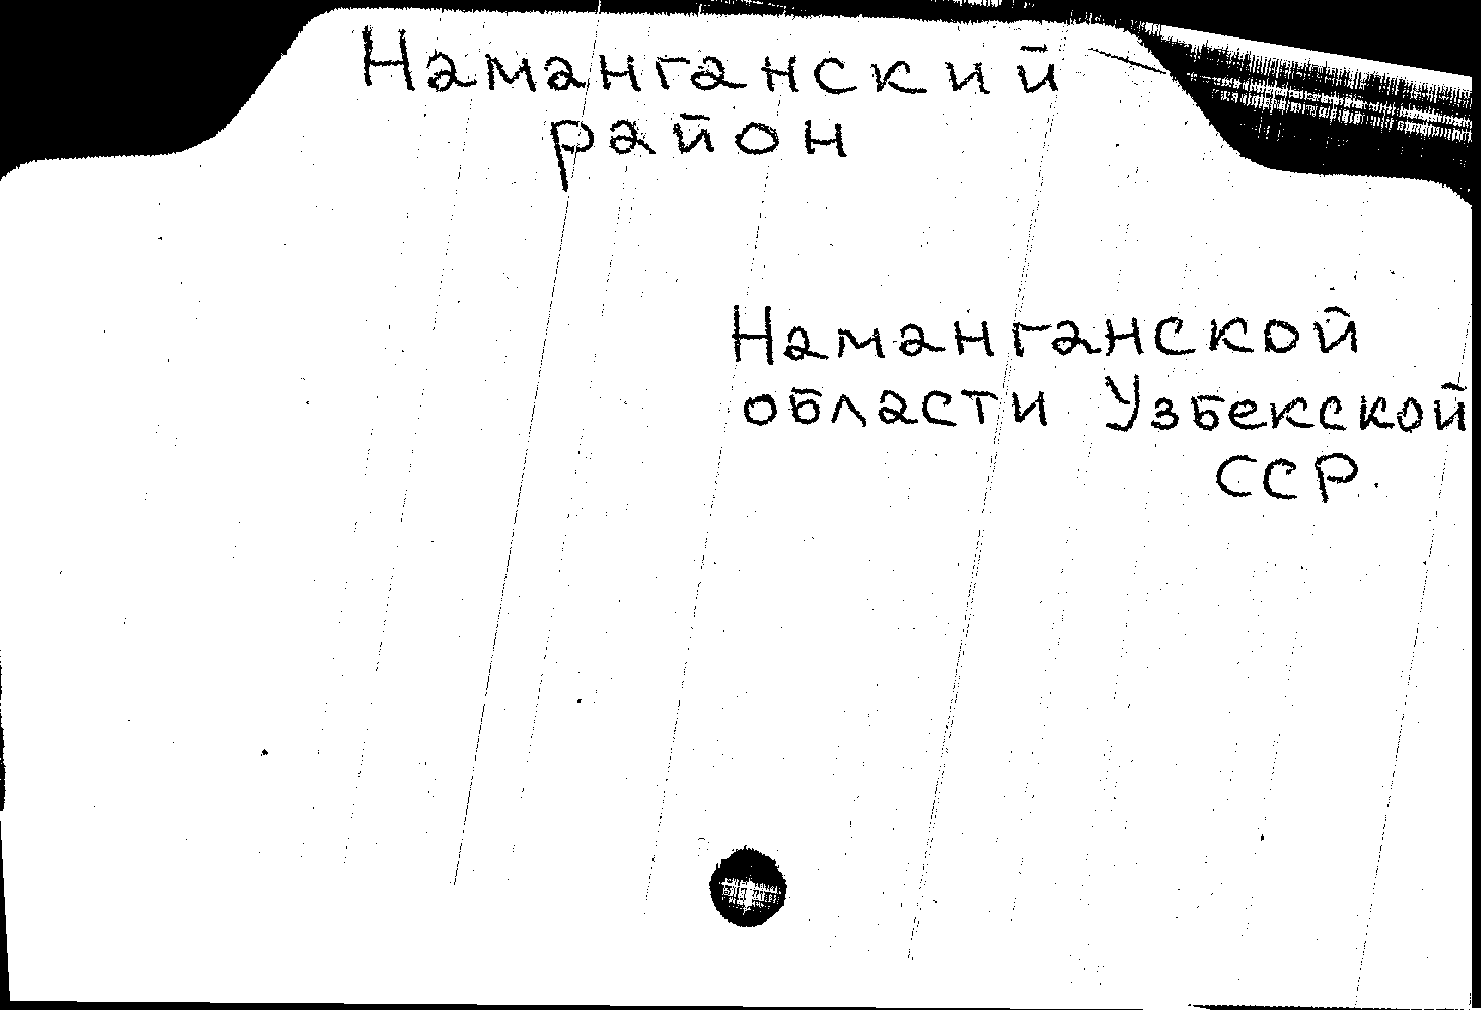 Наманганский
район
Наманганской
области Узбекской
ССР.